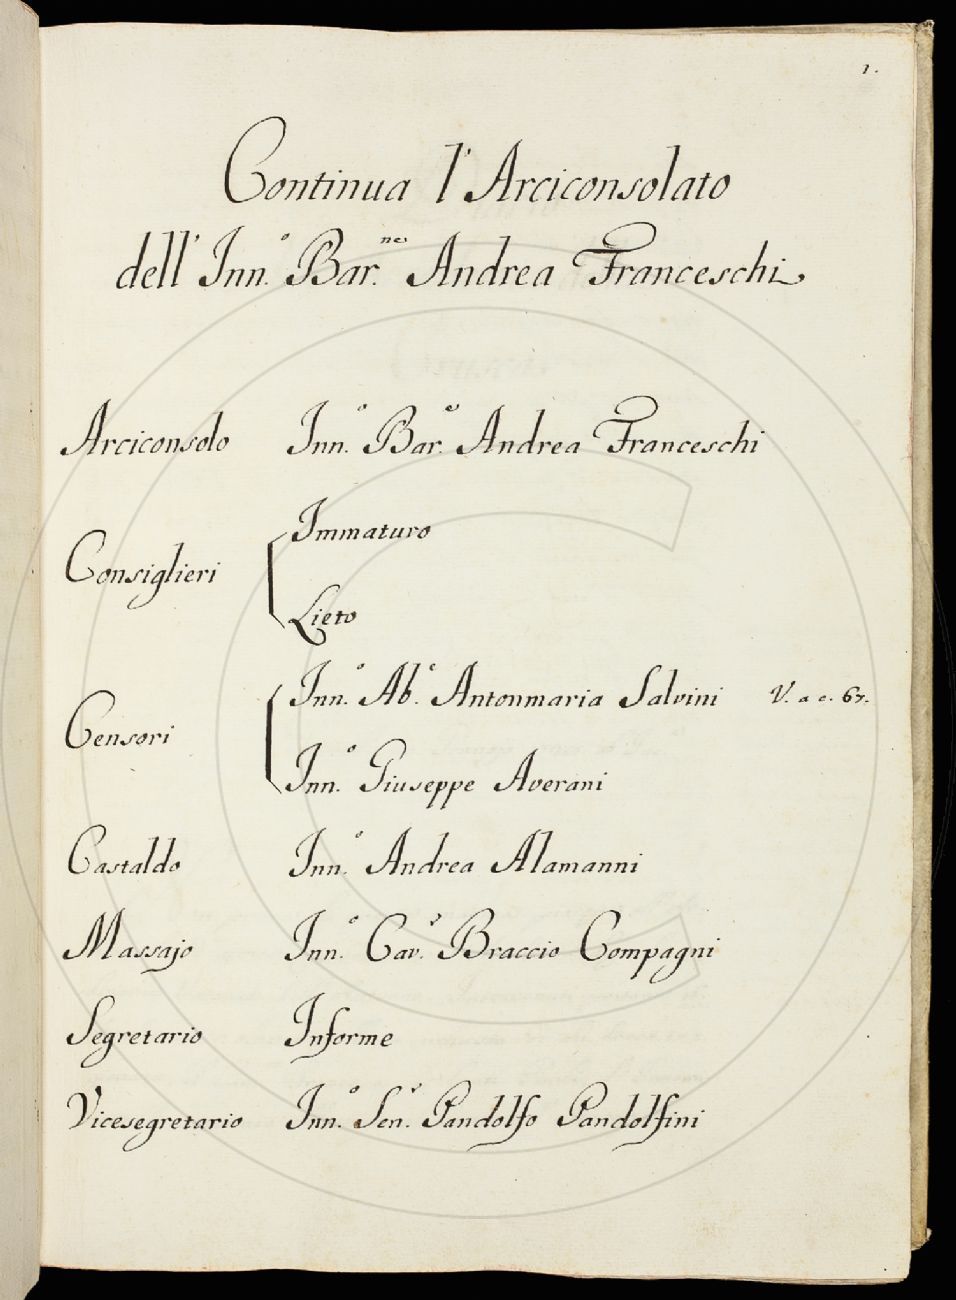 1.
Continua l'Arciconsolato
dell' Inn.º Bar.ⁿᵉ Andrea Franceschi
Arciconsolo Inn.º Bar.ᵉ Andrea Franceschi
Immaturo
Consiglieri
Lieto
Inn.º Ab.ᵉ Antonmaria Salvini V. a c. 67.
Censori
Inn.º Giuseppe Averani
Castaldo Inn.º Andrea Alamanni
Massajo Inn.º Cav.ʳ Braccio Compagni
Segretario Informe
Vicesegretario Inn.º Sen.ʳ Pandolfo Pandolfini